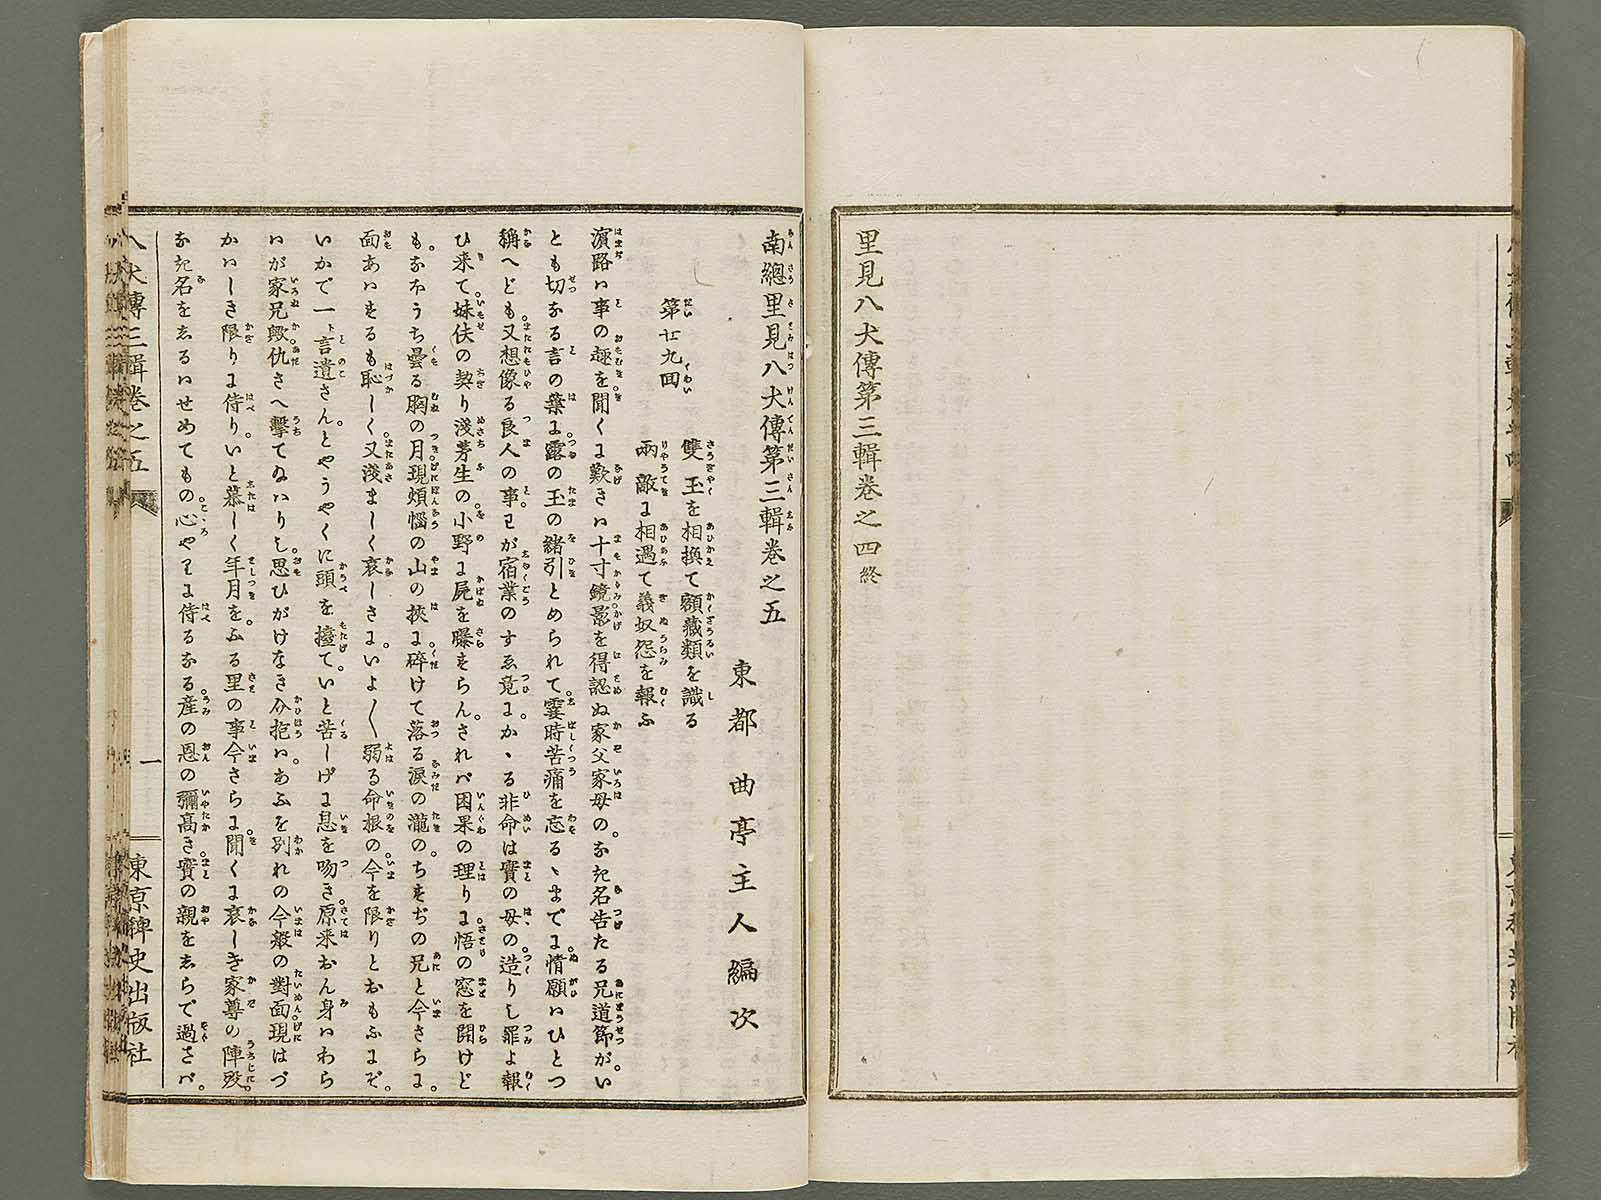 里見八犬傳第三輯卷之四終
南總里見八犬傳第三輯卷之五
東都 曲亭主人編次
第廿九回
雙玉を相換て額藏類を識る
兩敵に相遇て義奴怨を報ふ
濵路は事の趣を。聞くに歎きは十寸鏡。影を得認ぬ家父家母の。なき名告たる兄道節が。い
とも切なる言の葉に。露の玉の緒引とめられて。霎時苦痛を忘るゝまでに。情願はひとつ
稱へども。又想像る良人の事。わが宿業のすゑ竟に。かゝる非命は實の母の。造りし罪よ報
ひ来て。妹伕の契り淺茅生の。小野に屍を曝すらん。されば因果の理りに。悟の窓を開けど
も。なほうち曇る胸の月。現煩惱の山の挾に。碎けて落る涙の瀧の。ちすぢの兄と今さらに。
面あはするも恥しく。又淺ましく哀しさに。いよ〱弱る命根の。今を限りとおもふにぞ。
いかで一ト言遺さん。とやうやくに頭を擡て。いと苦しげに息を吻き。原来おん身はわら
はが家兄歟。仇さへ撃てゐはりし。思ひがけなき介抱は。あふを別れの今般の對面。現はづ
かはしき限りに侍り。いと慕しく年月を。ふる里の事今さらに。聞くに哀しき家尊の陣歿。
なき名をしるはせめてもの。心やりに侍るなる。産の恩の彌高き。實の親をしらで過さば。
八犬傳三輯卷之五
一
東京稗史出版社